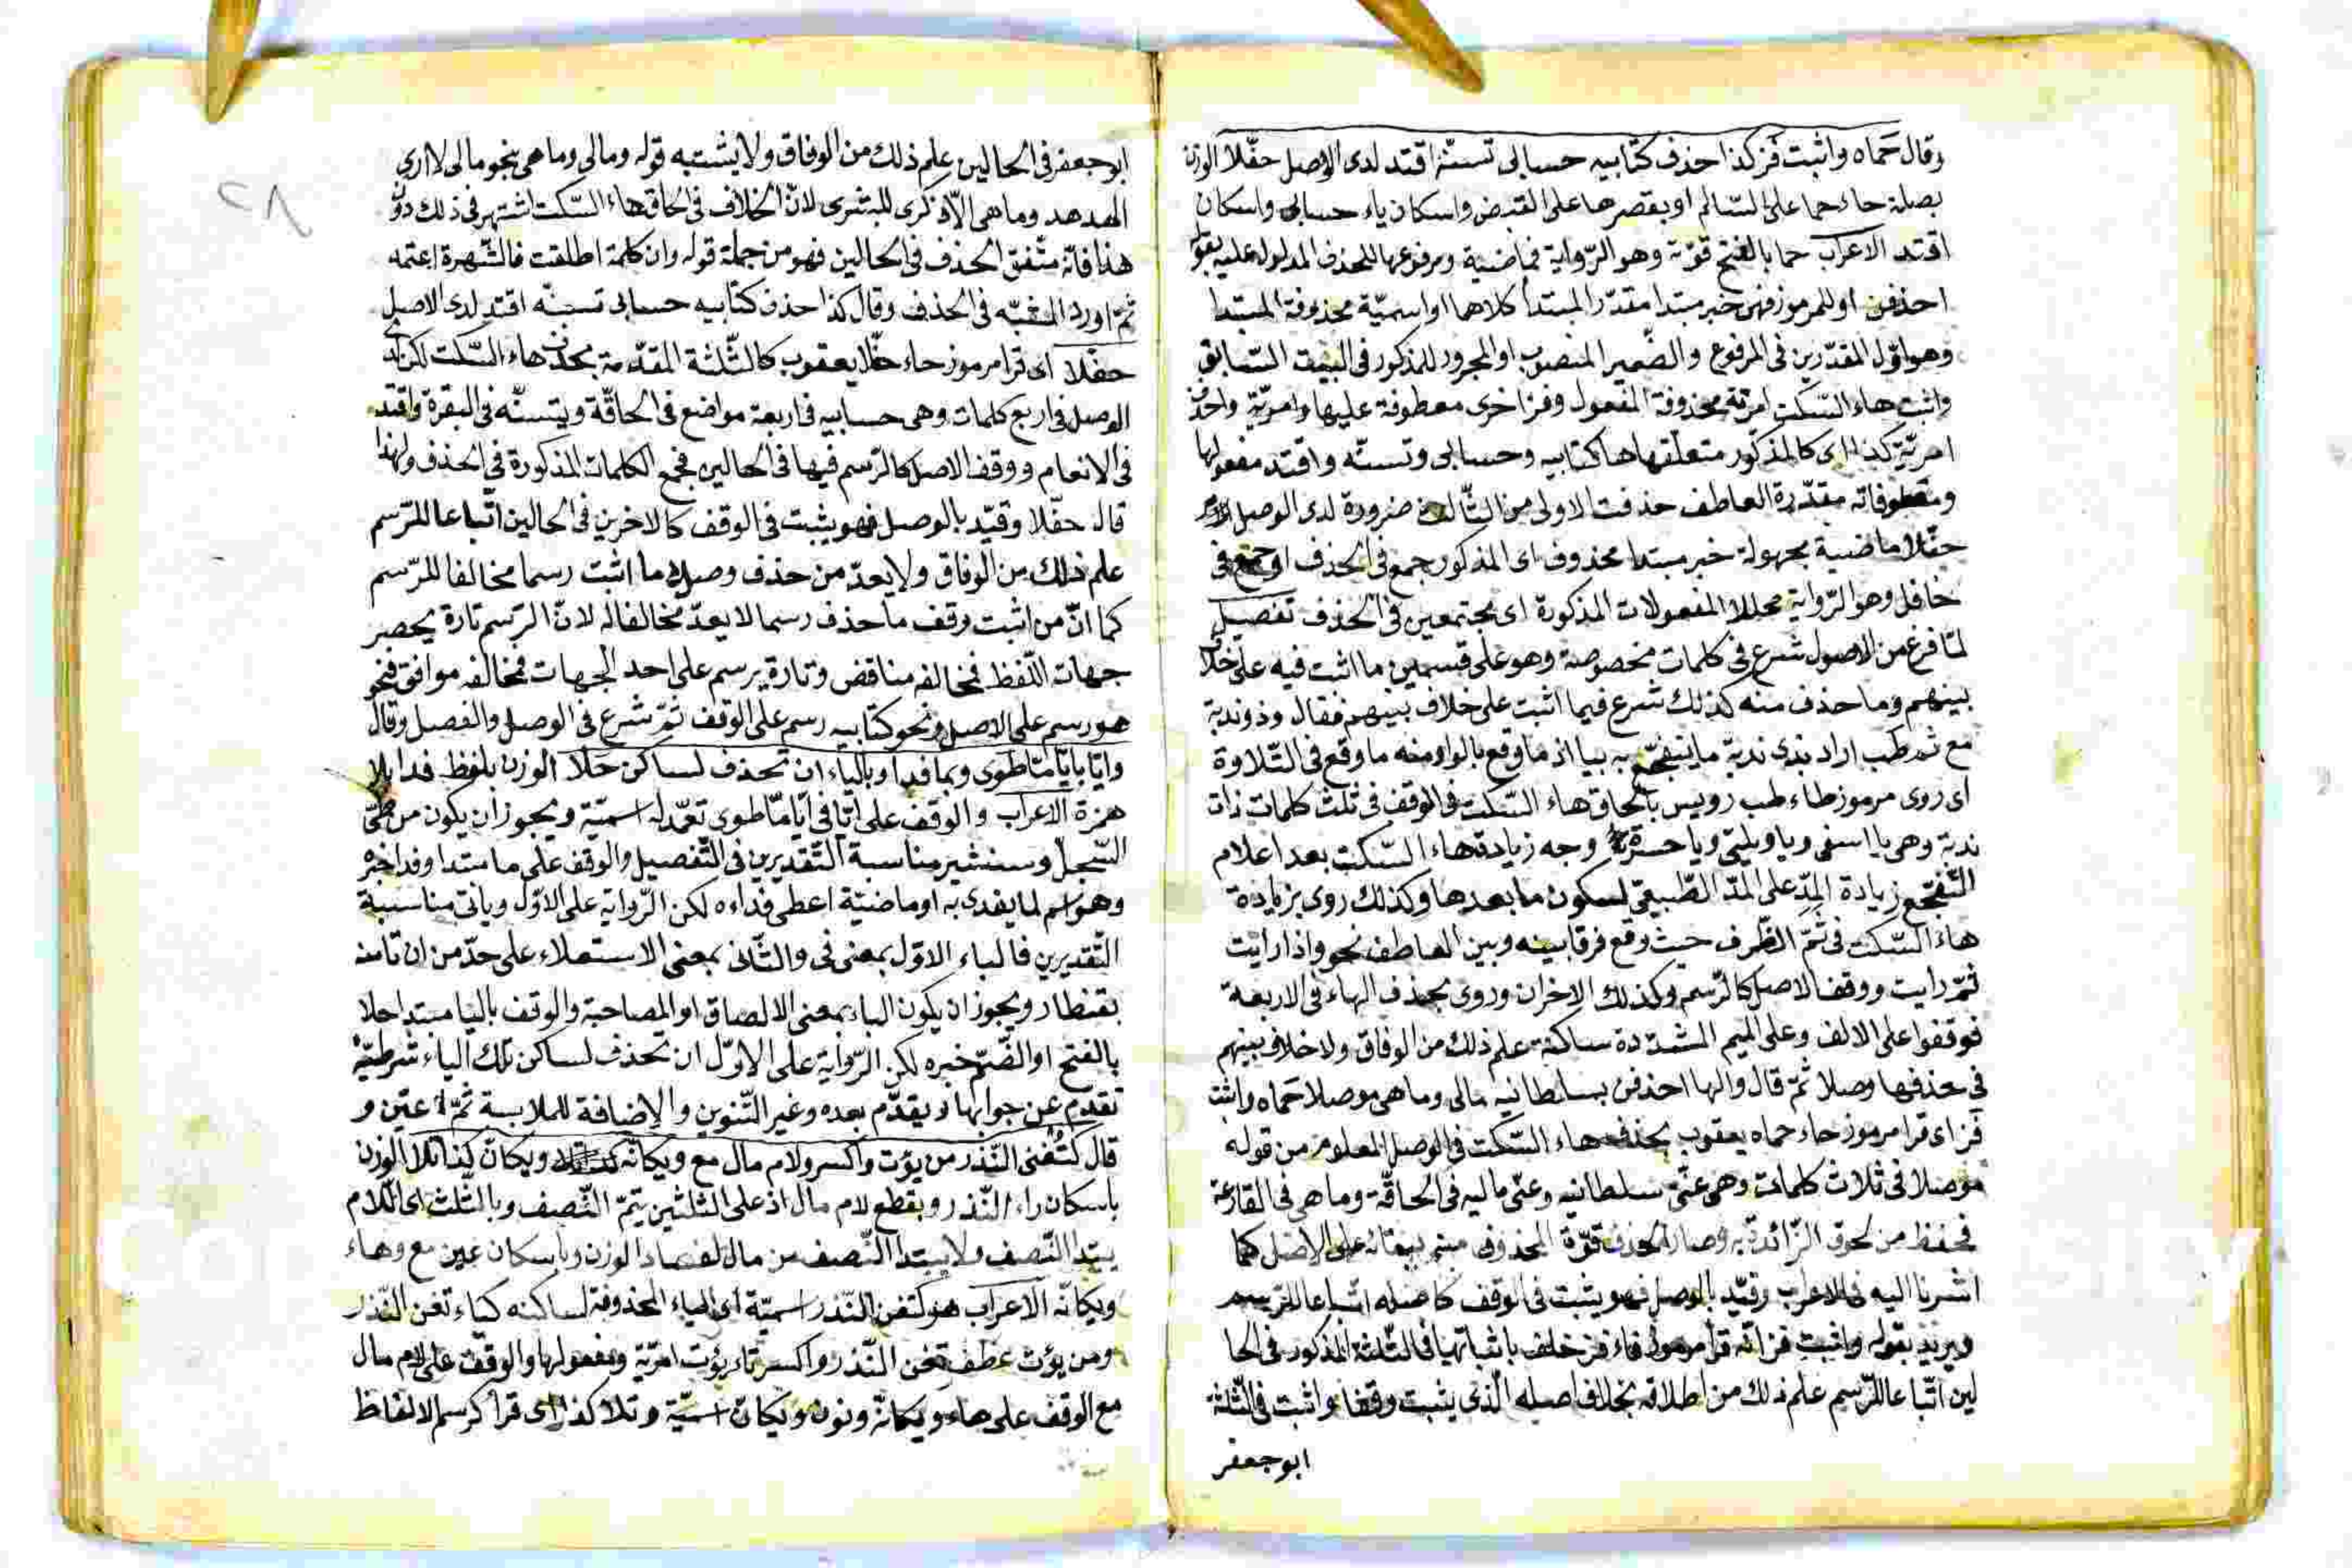 وقال حماه واثبت فز كذا احذف كتابيه حسابى تسنه اقتد لدى الوصل حفّلا الوزن
بصلة حاء حما على السّالم او بقصرها على القبض واسكان ياء حسابى واسكان
اقتد الاعراب حما بالفتح قوّة وهو الرّواية فماضية ومرفوعها للحذف المدلول عليه بقو
احذفن او للمرموز فهى خبر مبتدا مقدّر المبتدأ كلاهما او اسميّة محذوفة المبتدا
وهو اوّل المقدّرين فى المرفوع والضّمير المنصوب او المجرور للمذكور فى البيت السّابق
واثبت هاء السّكت امريّة محذوفة المفعول وفز اخرى معطوفة عليها وامريّة واحذف
امريّة كذا اى كالمذكور متعلّقها ها كتابيه وحسابى وتسنّه واقتد مفعولها
ومعطوفاته مقدّرة العاطف حذفت الاولى من الثّالث ضرورة لدى الوصل
حفّلا ماضية مجهولة خبر مبتدا محذوف اى المذكور جمع فى الحذف او جمع فى
حافل وهو الرّواية محللا المفعولات المذكورة اى مجتمعين فى الحذف تفصيل
لمّا فرغ من الاصول شرع فى كلمات مخصوصة وهو على قسمين ما اثبت فيه على خلاف
بينهم وما حذف منه كذلك شرع فيما اثبت على خلاف بينهم فقال وذو ندبة
مع ثم طب اراد بذى ندبة ما يتفجّع به بيا اذ ما وقع بالواو منه ما وقع فى التّلاوة
اى روى مرموز طاء طب رويس بالحاق هاء السّكت فى الوقف فى ثلث كلمات ذات
ندبة وهى يا اسفى ويا ويلتى ويا حسرتى وجه زيادة هاء السّكت بعد اعلام
التّفجّع زيادة المدّ على المدّ الطّبيعىّ لسكون ما بعدها وكذلك روى بزيادة
هاء السّكت فى ثمّ الظّرف حيث وقع فرقا بينه وبين العاطف نحو واذا رايت
ثمّ رايت ووقف الاصل كالرّسم وكذلك الاخران وروى بحذف الهاء فى الاربعة
فوقفوا على الالف وعلى الميم المشدّدة ساكنة علم ذلك من الوفاق ولا خلاف بينهم
فى حذفها وصلا ثمّ قال والها احذفن بسلطانيه مالى وما هى موصلا حماه واثبت
فز اى قرا مرموز حاء حماه يعقوب بحذف هاء السّكت فى الوصل المعلوم من قوله
موصلا فى ثلاث كلمات وهى عنّى سلطانيه وعنّى ماليه فى الحاقّة وما هى فى القارعة
فحفظ من لحوق الزّائدة به وصار الحذف قوّة المحذوف منه ببقائه على الاصل كما
اشرنا اليه فى الاعراب وقيّد بالوصل فهو يثبت فى الوقف كاصله اتّباعا للرّسم
ويريد بقوله واثبت فز انّه قرا مرموز فاء فز خلف باثباتها فى الثّلثة المذكور فى الحا
لين اتّباعا للرّسم علم ذلك من اطلاقه بخلاف اصله الّذى يثبت وقفا واثبت فى الثّلثة
ابو جعفر
ابو جعفر فى الحالين علم ذلك من الوفاق ولا يشتبه قوله ومالى وما هى بنحو مالى لا ارى
الهدهد وما هى الّا ذكرى للبشرى لانّ الخلاف فى الحاق هاء السّكت اشتهر فى ذلك دون
هذا فانّه متّفق الحذف فى الحالين فهو من جملة قوله وان كلمة اطلقت فالشّهرة اعتمد
ثمّ اورد المشبّه فى الحذف وقال كذا احذف كتابيه حسابى تسنّه اقتد لدى الوصل
حفّلا اى قرا مرموز حاء حفّلا يعقوب كالثّلثة المقدّمة بحذف هاء السّكت لكن لدى
الوصل فى اربع كلمات وهى حسابيه فى اربعة مواضع فى الحاقّة ويتسنّه فى البقرة واقتد
فى الانعام ووقف الاصل كالرّسم فيها فى الحالين فجمع الكلمات المذكورة فى الحذف ولهذا
قال حفّلا وقيّد بالوصل فهو يثبت فى الوقف كالاخرين فى الحالين اتّباعا للرّسم
علم ذلك من الوفاق ولا يعدّ من حذف وصلا ما اثبت رسما مخالفا للرّسم
كما انّ من اثبت وقف ما حذف رسما لا يعدّ مخالفا له لانّ الرّسم تارة يحصر
جهات اللّفظ فمخالفه مناقض وتارة يرسم على احد الجهات فمخالفه موافق فنحو
هو رسم على الاصل ونحو كتابيه رسم على الوقف ثمّ شرع فى الوصل والفصل وقال
وايّا بايّا مّا طوى وبما فدا وبالياء ان تحذف لساكن حلا الوزن بلفظ فدا بلا
همزة الاعراب والوقف على ايّا فى ايّا مّا طوى تعمّد له اسميّة ويجوز ان يكون من طىّ
السّجلّ وسنشير مناسبة التّقديرين فى التّفصيل والوقف على ما مبتدا وفدا خبره
وهو اسم لما يفدى به او ماضيّة اعطى فداءه لكن الرّواية على الاوّل وياتى مناسبة
التّقديرين فالباء الاوّل بمعنى فى والثّانى بمعنى الاستعلاء على حدّ من ان تامنه
بقنطار ويجوز ان يكون الباء بمعنى الالصاق او المصاحبة والوقف باليا مبتدا حلا
بالفتح او الضّمّ خبره لكن الرّواية على الاوّل ان تحذف لساكن تلك الياء شرطيّة
تقدّم عن جوابها ويقدّم بعده وغير التّنوين والاضافة للملابسة ثمّ عيّن و
قال كتغنى النّذر من يؤت واكسر ولام مال مع ويكانّه ويكانّ كذا تلا الوزن
باسكان راء النّذر وبقطع لام مال اذ على الثلثين يتمّ النّصف وبالثّلث اى اللّام
يبتدا النّصف ولا يبتدا النّصف من مال لفساد الوزن وباسكان عين مع وهاء
ويكانّه الاعراب هو كتغن النّذر اسميّة اى الياء المحذوفة لساكنه كياء تغن النّذر
ومن يؤت عطف تغن النّذر واكسر تاء يؤت امريّة ومفعولها والوقف على لام مال
مع الوقف على هاء ويكانّه ونون ويكانّ اسميّة وتلا كذا اى قرأ كرسم الالفاظ